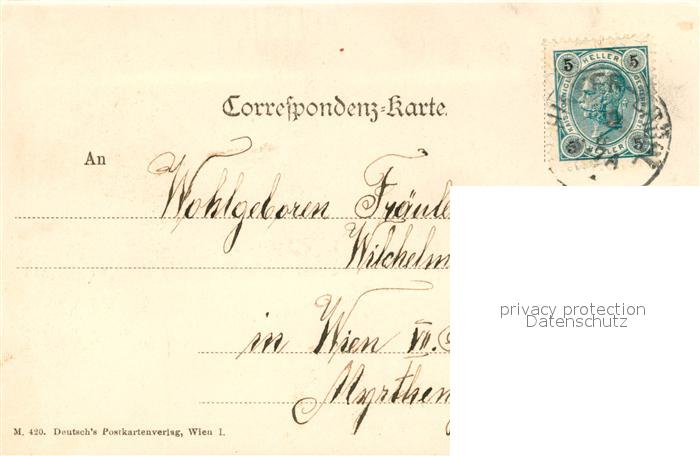 5 HELLER 5
5 HELLER 5
Correspondenz-Karte.
An
Wohlgeboren Fräule
Wilchelm
in Wien VII.
Myrthen
privacy protection
Datenschutz
M. 420. Deutsch's Postkartenverlag, Wien I.